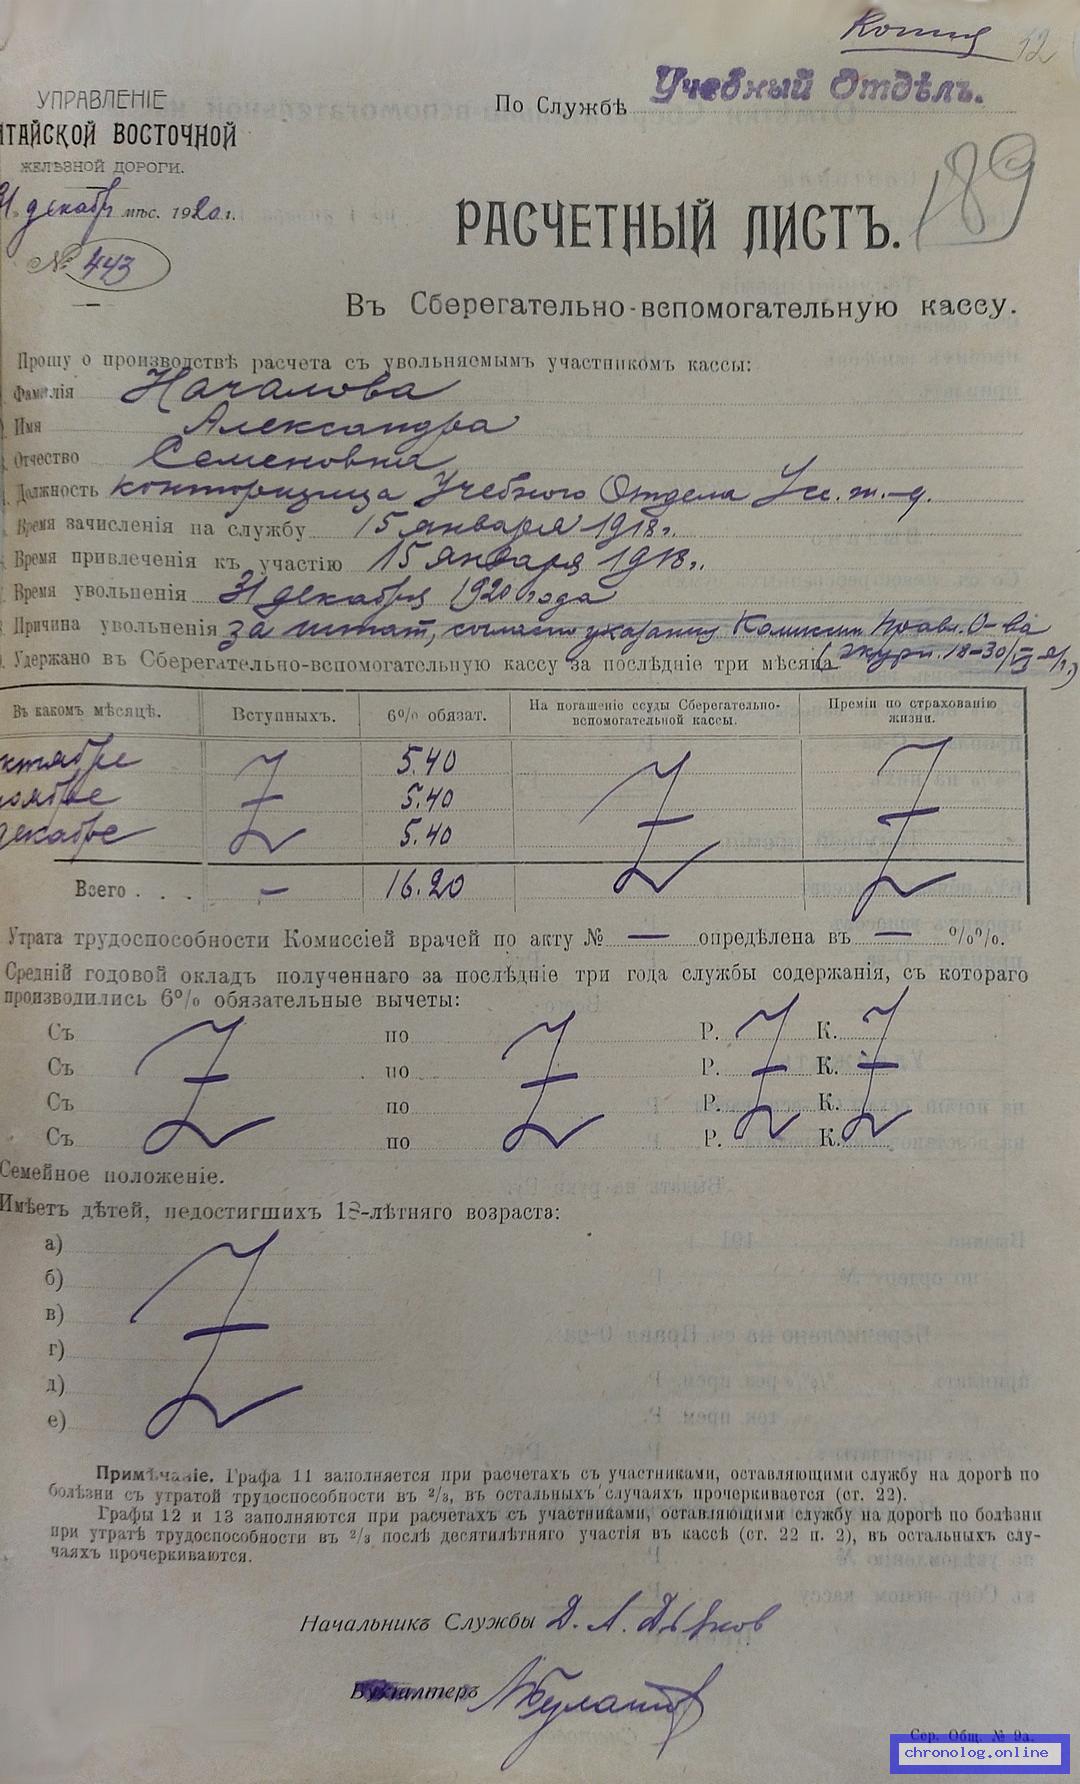 Копия 12
УПРАВЛЕНІЕ
ИТАЙСКОЙ ВОСТОЧНОЙ
ЖЕЛѢЗНОЙ ДОРОГИ.
31 декабр мѣс. 1920 г.
№ 443
По Службѣ Учебный Отдѣлъ.
189
РАСЧЕТНЫЙ ЛИСТЪ.
Въ Сберегательно-вспомогательную кассу.
Прошу о производствѣ расчета съ увольняемымъ участникомъ кассы:
Фамилія Началова
Имя Александра
Отчество Семеновна
Должность конторщица Учебного Отдела
Время зачисленія на службу 15 января 1918 г.
Время привлеченія къ участію 15 января 1918 г.
Время увольненія 31 декабря 1920 года
Причина увольненія за штат, согласно указания Комиссии Правл. О-ва
Удержано въ Сберегательно-вспомогательную кассу за послѣдніе три мѣсяца (журн. 18-30/
Въ какомъ мѣсяцѣ. Вступныхъ. 6% обязат. На погашеніе ссуды Сберегательно-вспомогательной кассы. Преміи по страхованію жизни.
ктябре 5.40
ноябре 5.40
декабре 5.40
Всего . . . — 16.20
Утрата трудоспособности Комиссіей врачей по акту № — опредѣлена въ — %%.
Средній годовой окладъ полученнаго за послѣдніе три года службы содержанія, съ котораго
производились 6% обязательные вычеты:
Съ по Р. К.
Съ по Р. К.
Съ по Р. К.
Съ по Р. К.
Семейное положеніе.
Имѣетъ дѣтей, недостигшихъ 18-лѣтняго возраста:
а)
б)
в)
г)
д)
е)
Примѣчаніе. Графа 11 заполняется при расчетахъ съ участниками, оставляющими службу на дорогѣ по
болѣзни съ утратой трудоспособности въ 2/3, въ остальныхъ случаяхъ прочеркивается (ст. 22).
Графы 12 и 13 заполняются при расчетахъ съ участниками, оставляющими службу на дорогѣ по болѣзни
при утратѣ трудоспособности въ 2/3 послѣ десятилѣтняго участія въ кассѣ (ст. 22 п. 2), въ остальныхъ слу-
чаяхъ прочеркиваются.
Начальникъ Службы Д. А. Дьяков
Бухгалтеръ
Сер. Общ. № 9а.
chronolog.online